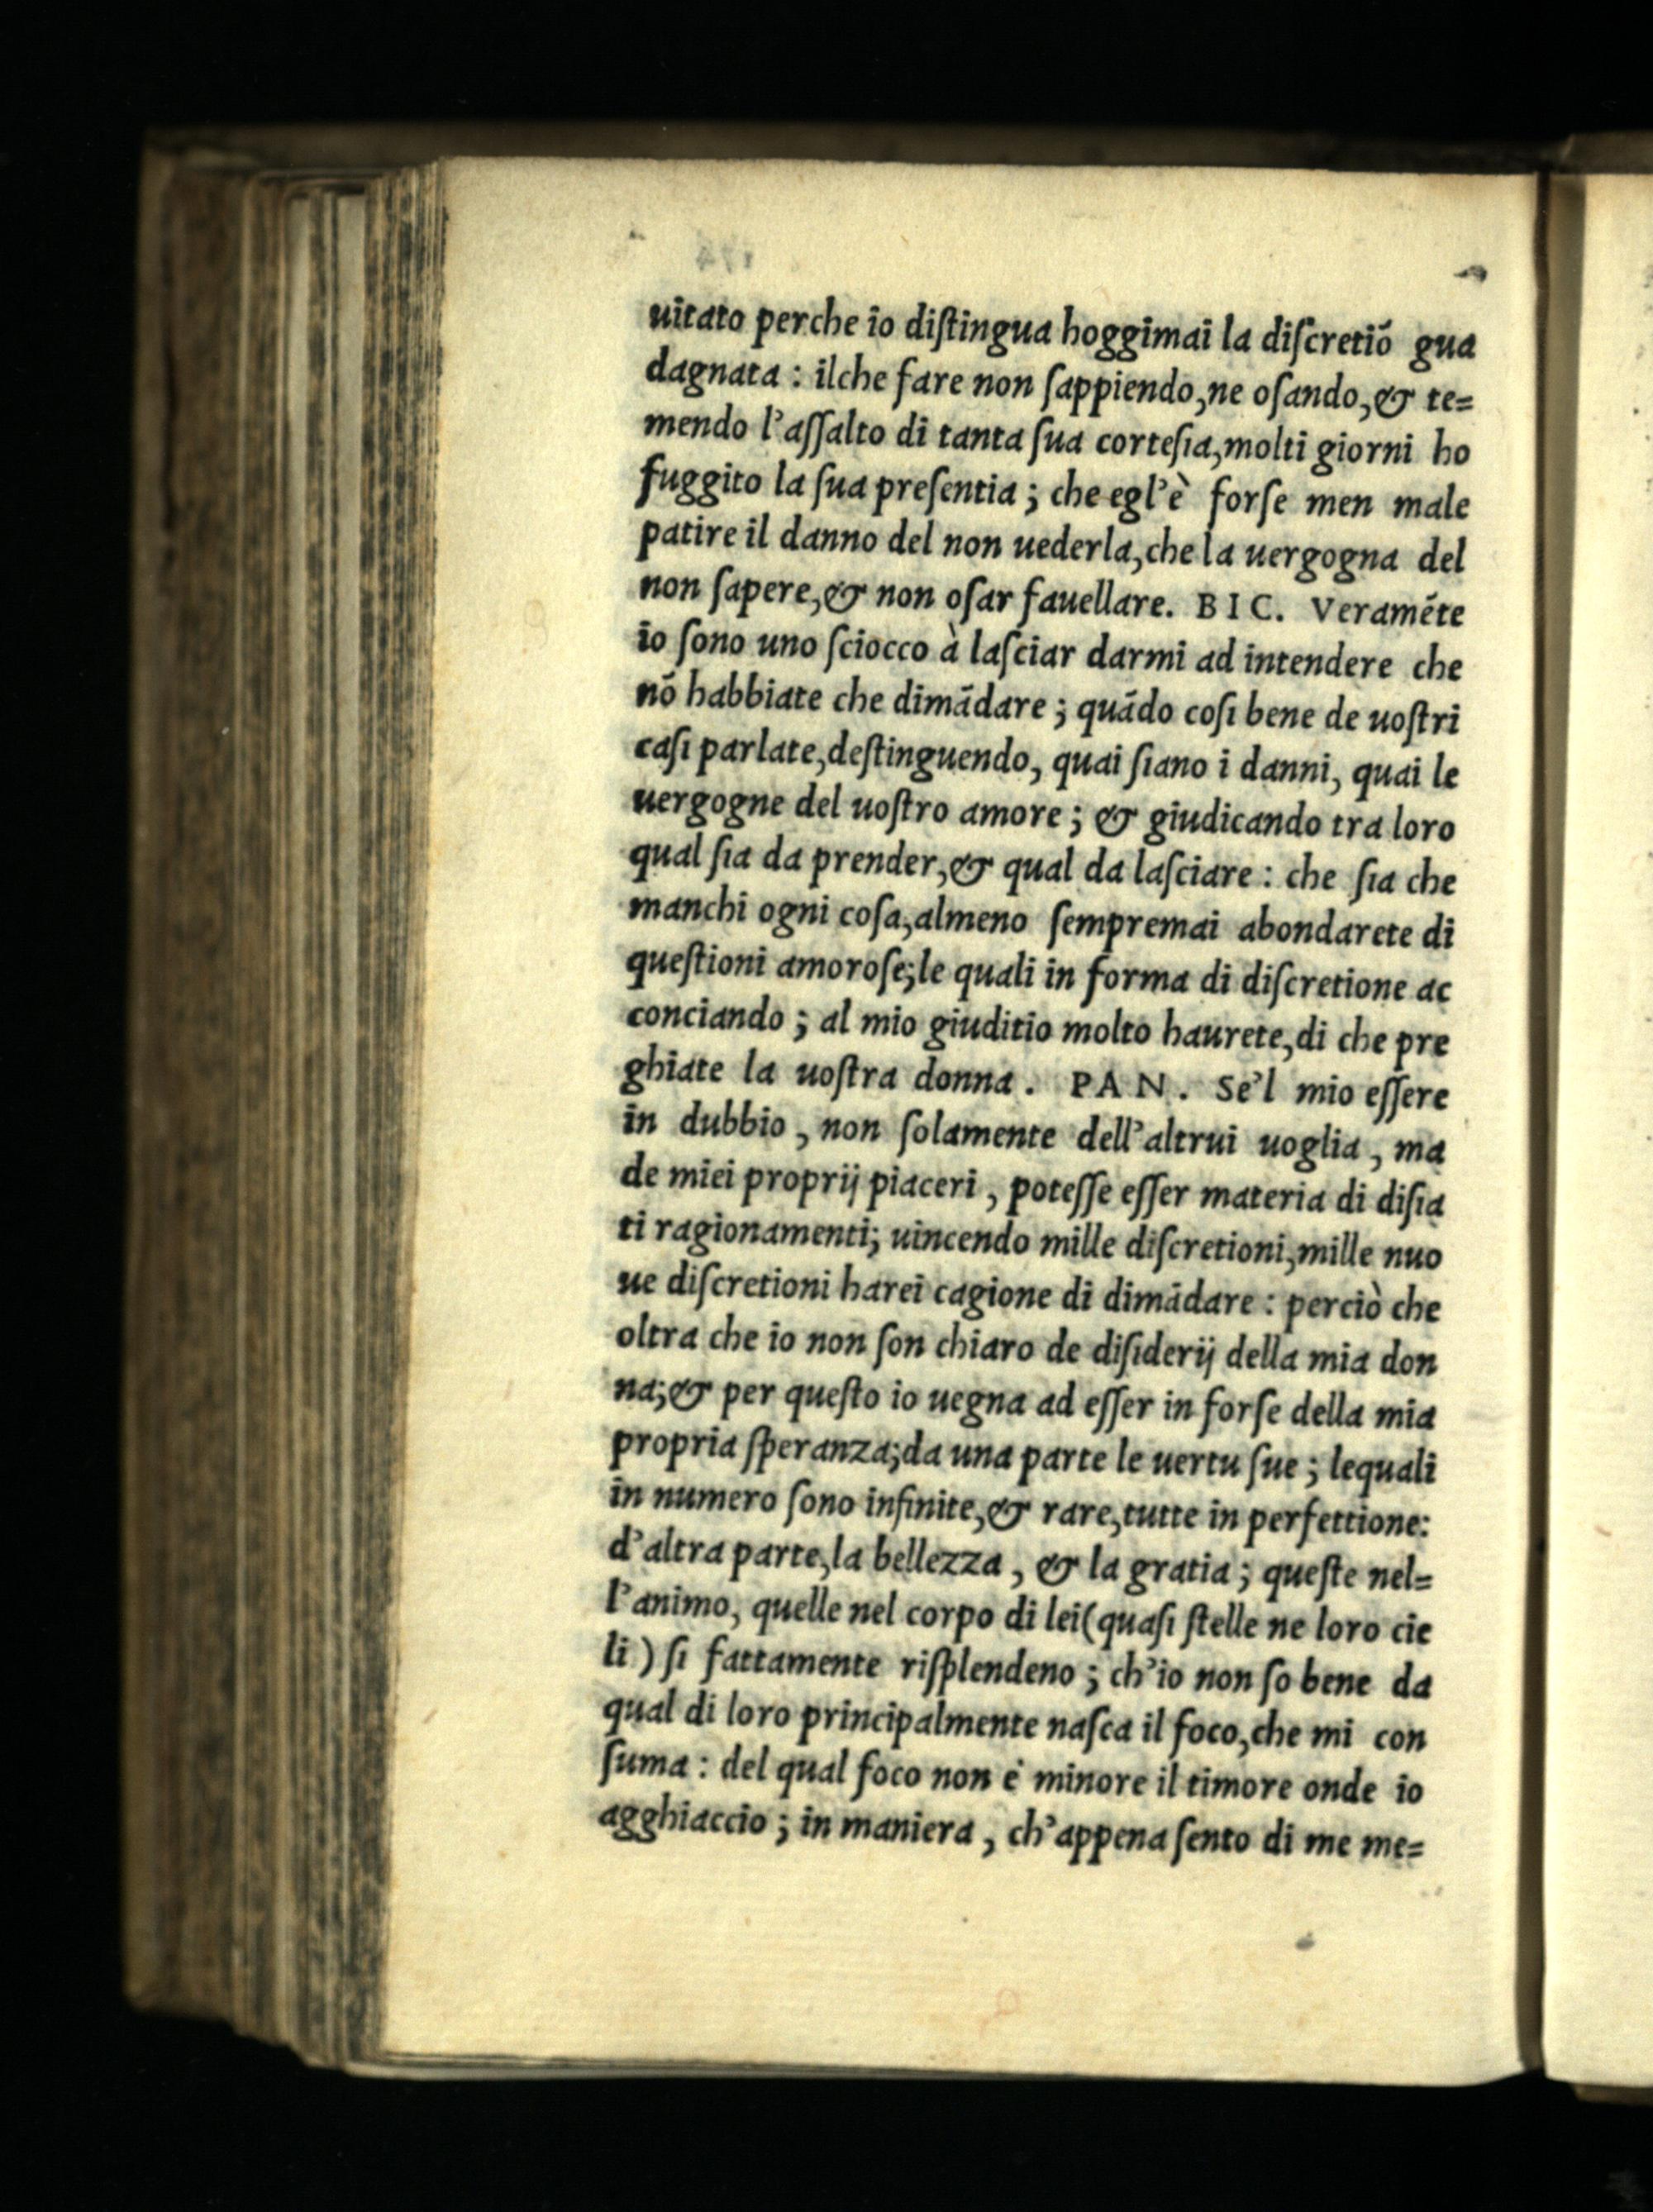 uitato perche io diſtingua hoggimai la diſcretiõ gua
dagnata : ilche fare non ſappiendo,ne oſando,& te=
mendo l'aſſalto di tanta ſua corteſia,molti giorni ho
fuggito la ſua preſentia ; che egl'è forſe men male
patire il danno del non uederla,che la uergogna del
non ſapere,& non oſar fauellare. BIC. Veramẽte
io ſono uno ſciocco à laſciar darmi ad intendere che
nõ habbiate che dimãdare ; quãdo coſi bene de uoſtri
caſi parlate,deſtinguendo, quai ſiano i danni, quai le
uergogne del uoſtro amore ; & giudicando tra loro
qual ſia da prender,& qual da laſciare : che ſia che
manchi ogni coſa,almeno ſempremai abondarete di
queſtioni amoroſe;le quali in forma di diſcretione ac
conciando ; al mio giuditio molto haurete,di che pre
ghiate la uoſtra donna. PAN. Se'l mio eſſere
in dubbio, non ſolamente dell'altrui uoglia, ma
de miei proprij piaceri, poteſſe eſſer materia di diſia
ti ragionamenti; uincendo mille diſcretioni,mille nuo
ue diſcretioni harei cagione di dimãdare : perciò che
oltra che io non ſon chiaro de diſiderij della mia don
na;& per queſto io uegna ad eſſer in forſe della mia
propria ſperanza;da una parte le uertu ſue ; lequali
in numero ſono infinite,& rare,tutte in perfettione:
d'altra parte,la bellezza, & la gratia ; queſte nel=
l'animo, quelle nel corpo di lei(quaſi ſtelle ne loro cie
li) ſi fattamente riſplendeno ; ch'io non ſo bene da
qual di loro principalmente naſca il foco,che mi con
ſuma : del qual foco non è minore il timore onde io
agghiaccio ; in maniera, ch'appena ſento di me me=